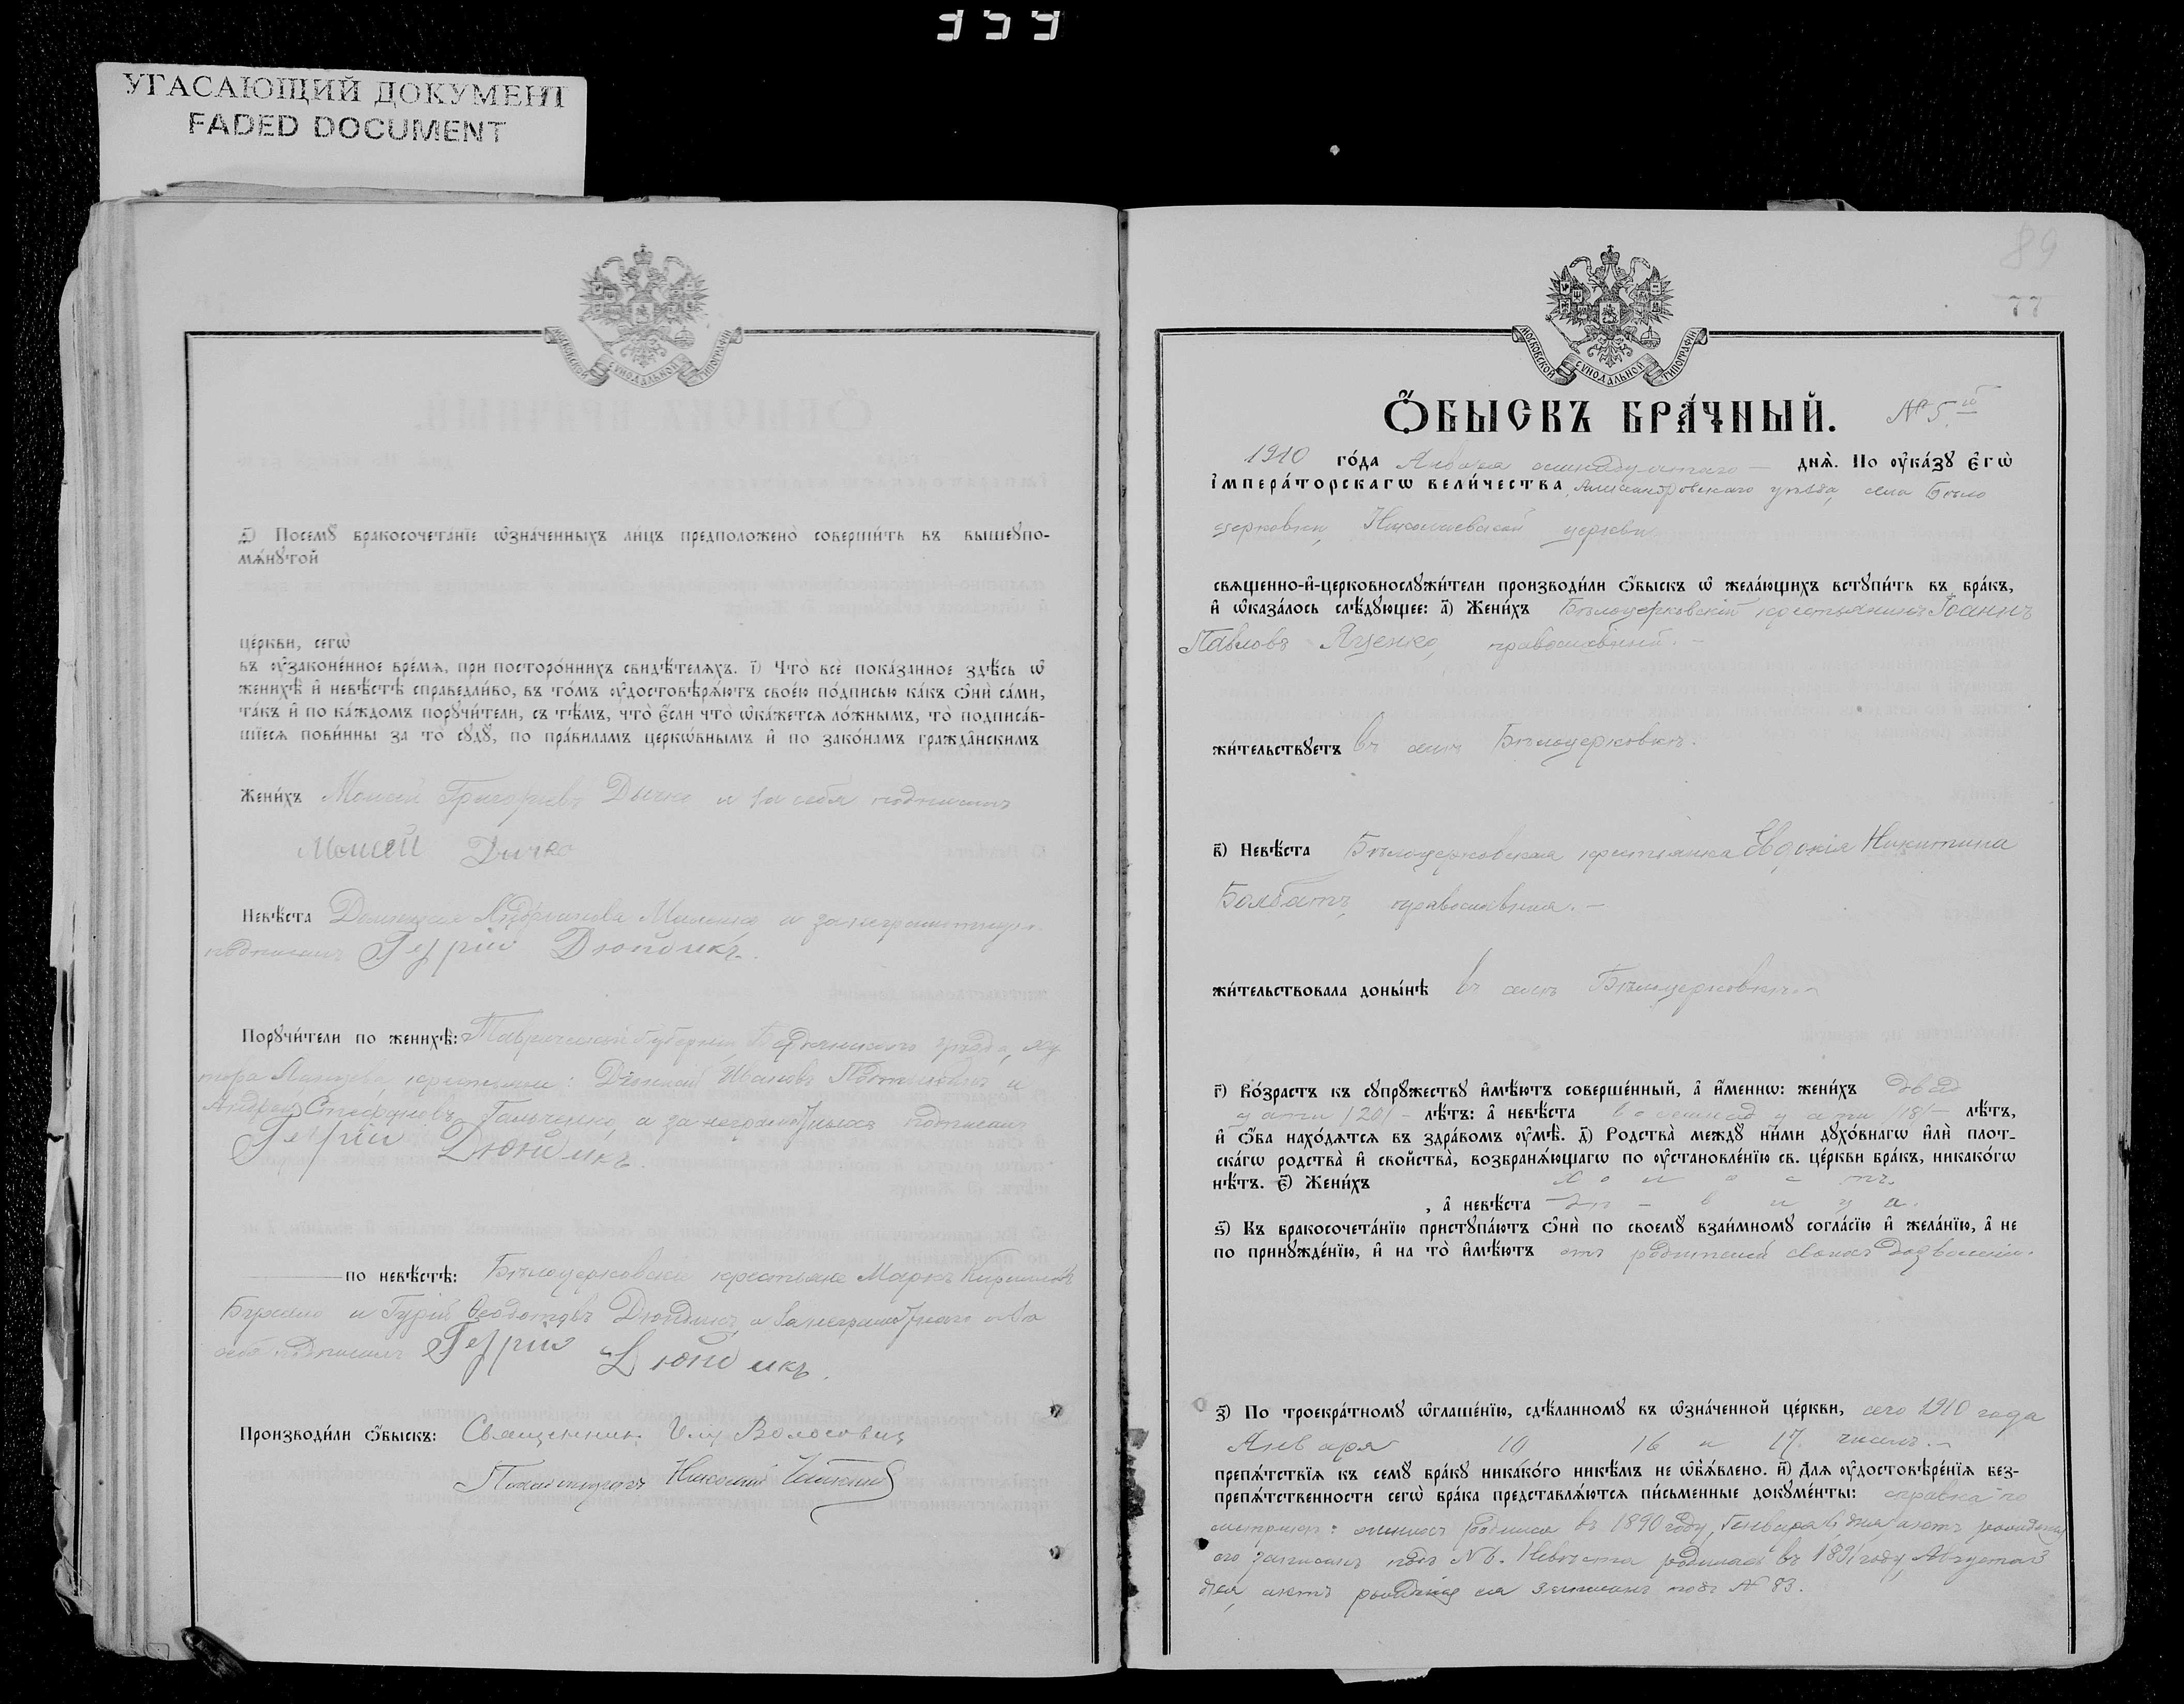 УГАСАЮЩИЙ ДОКУМЕНТ
FADED DOCUMENT
МОСКОВСКОЙ СѴНОДАЛЬНОЙ ТИПОГРАФІИ
д҃) Посемꙋ бракосочетанїе ѡ҆значенныхъ лицъ предположено совершить въ вышеꙋпо-
мянꙋтой
церкви, сегѡ
въ ᲂу҆законенное время, при постороннихъ свидѣтеляхъ. і҃) Что все показанное здѣсь ѡ҆
женихѣ и҆ невѣстѣ справедливо, въ томъ ᲂу҆достовѣряютъ своею подписью какъ ѻ҆ни сами,
такъ и҆ по каждомъ порꙋчители, съ тѣмъ, что є҆сли что ѡ҆кажется ложнымъ, то подписав-
шїеся повинны за то сꙋдꙋ, по правиламъ церкѡвнымъ и҆ по законамъ гражданскимъ
Женихъ Моисей Григорьевъ Дычко и за себя подписалъ
Моисей Дычко
Невѣста и за неграмотную
подписалъ Гурій Дюндикъ.
Порꙋчители по женихѣ: Таврической губерніи, Бердянскаго уѣзда, ху
тора крестьяне: Ивановъ и
Андрей Стефановъ Гальченко, а за неграмотныхъ подписалъ
Гурій Дюндикъ.
по невѣстѣ: Бѣлоцерковскіе крестьяне Маркъ Кирилловъ
и Гурій Ѳеодотовъ Дюндикъ, а за неграмотнаго и за
себя подписалъ Гурій Дюндикъ.
Производили ѻ҆быскъ: Священникъ Волосовиц
Псаломщикъ Николай
89
77
МОСКОВСКОЙ СѴНОДАЛЬНОЙ ТИПОГРАФІИ
Ѻ҆БЫСКЪ БРАЧНЫЙ. № 5й
1910 года Января осмнадцатаго — дня. По ᲂу҆казꙋ є҆гѡ
і҆мператорскагѡ величества, Александровскаго уѣзда, села Бѣло
церковки, Николаевской церкви
священно-и҆-церковнослꙋжители производили ѻ҆быскъ ѡ҆ желающихъ встꙋпить въ бракъ,
и҆ ѡ҆казалось слѣдꙋющее: а҃) Женихъ Бѣлоцерковскій крестьянинъ Іоаннъ
Павловъ Яценко, православный. —
жительствꙋетъ въ селѣ Бѣлоцерковкѣ.
в҃) Невѣста Бѣлоцерковская крестьянка Евдокія Никитина
Болбатъ, православная. —
жительствовала донынѣ въ селѣ Бѣлоцерковкѣ. —
г҃) Возрастъ къ сꙋпрꙋжествꙋ и҆мѣютъ совершенный, а҆ и҆меннѡ: женихъ двад
цати /20/ — лѣтъ: а҆ невѣста восемнадцати /18/ — лѣтъ,
и҆ ѻ҆ба находятся въ здравомъ ᲂу҆мѣ. д҃) Родства междꙋ ними дꙋховнагѡ и҆ли плот-
скагѡ родства и҆ свойства, возбраняющагѡ по ᲂу҆становленїю св. церкви бракъ, никакогѡ
нѣтъ. є҃) Женихъ холостъ
, а҆ невѣста дѣвица.
ѕ҃) Къ бракосочетанїю пристꙋпаютъ ѻ҆ни по своемꙋ взаимномꙋ согласїю и҆ желанїю, а҆ не
по принꙋжденїю, и҆ на то и҆мѣютъ отъ родителей своихъ дозволеніе.
з҃) По троекратномꙋ ѡ҆глашенїю, сдѣланномꙋ въ ѡ҆значенной церкви, сего 1910 года
Января 10 16 и 17 числъ. —
препятствїя къ семꙋ бракꙋ никакого никѣмъ не ѡ҆б̾явлено. и҃) Для ᲂу҆достовѣренїя без-
препятственности сегѡ брака представляются письменные докꙋменты: справка по
метрикѣ: женихъ родился въ 1890 году, Генваря 6 дня, актъ рожденія
его записанъ подъ № 6. Невѣста родилась въ 1891 году, Августа 3
дня, актъ рожденія ея записанъ подъ № 83.